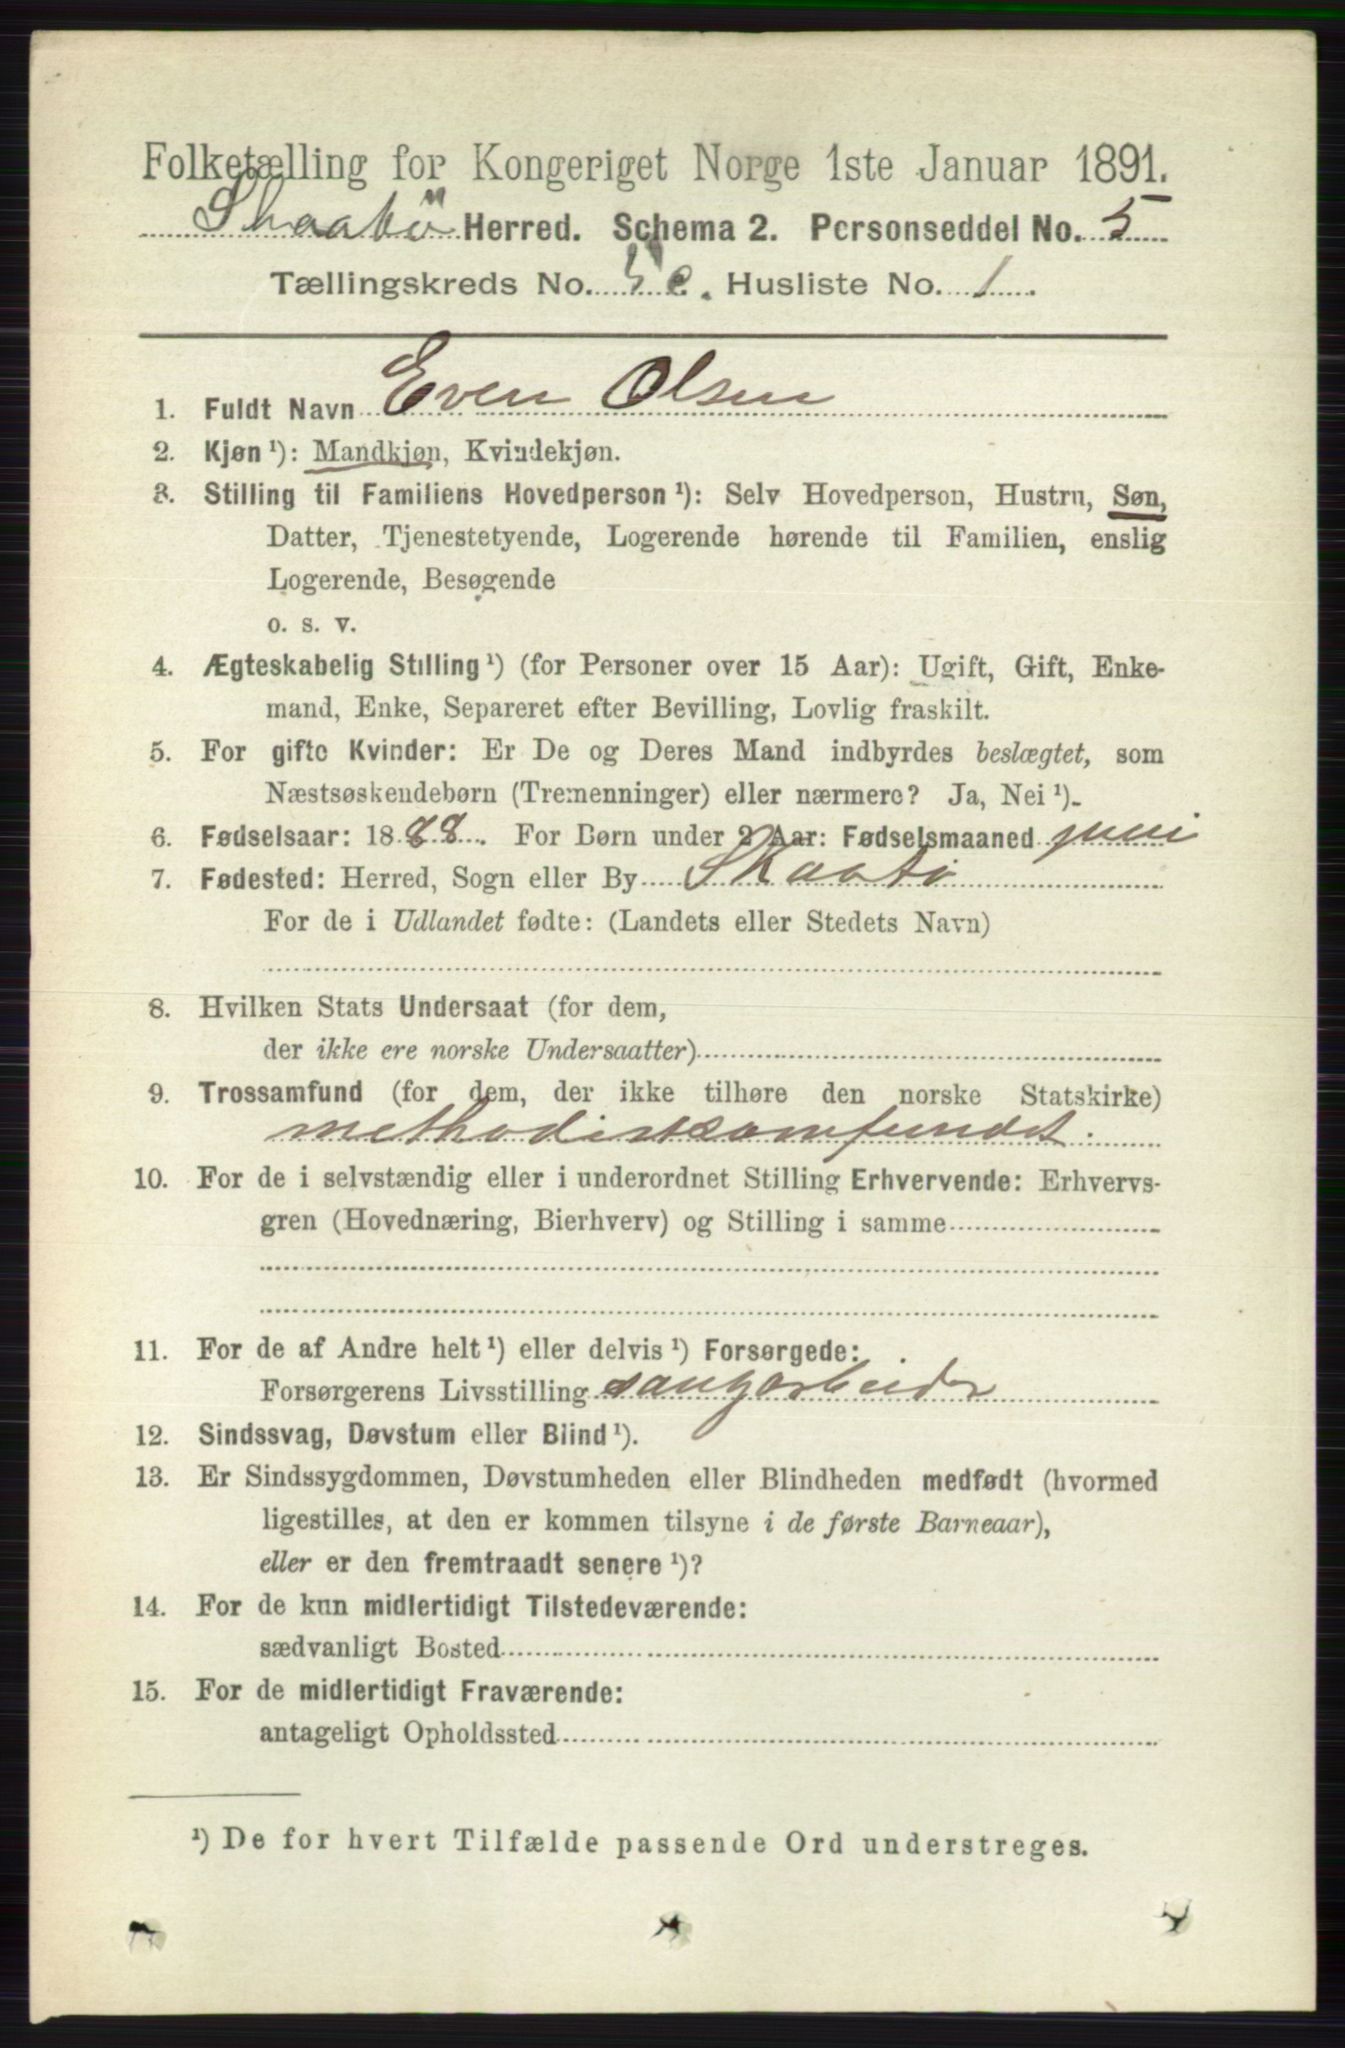 Folketælling for Kongeriget Norge 1ste Januar 1891.
Skaatö Herred. Schema 2. Personseddel No. 5
Tællingskreds No. 5 e. Husliste No. 1
1. Fuldt Navn Even Olsen
2. Kjøn¹): Mandkjøn, Kvindekjøn.
3. Stilling til Familiens Hovedperson¹): Selv Hovedperson, Hustru, Søn,
Datter, Tjenestetyende, Logerende hørende til Familien, enslig
Logerende, Besøgende
o. s. v.
4. Ægteskabelig Stilling¹) (for Personer over 15 Aar): Ugift, Gift, Enke-
mand, Enke, Separeret efter Bevilling, Lovlig fraskilt.
5. For gifte Kvinder: Er De og Deres Mand indbyrdes beslægtet, som
Næstsøskendebørn (Tremenninger) eller nærmere? Ja, Nei¹).
6. Fødselsaar: 1888. For Børn under 2 Aar: Fødselsmaaned juni
7. Fødested: Herred, Sogn eller By Skaatö
For de i Udlandet fødte: (Landets eller Stedets Navn)
8. Hvilken Stats Undersaat (for dem,
der ikke ere norske Undersaatter)
9. Trossamfund (for dem, der ikke tilhøre den norske Statskirke)
methodistsamfundet.
10. For de i selvstændig eller i underordnet Stilling Erhvervende: Erhvervs-
gren (Hovednæring, Bierhverv) og Stilling i samme
11. For de af Andre helt¹) eller delvis¹) Forsørgede:
Forsørgerens Livsstilling saugarbeider
12. Sindssvag, Døvstum eller Blind¹).
13. Er Sindssygdommen, Døvstumheden eller Blindheden medfødt (hvormed
ligestilles, at den er kommen tilsyne i de første Barneaar),
eller er den fremtraadt senere¹)?
14. For de kun midlertidigt Tilstedeværende:
sædvanligt Bosted
15. For de midlertidigt Fraværende:
antageligt Opholdssted
¹) De for hvert Tilfælde passende Ord understreges.